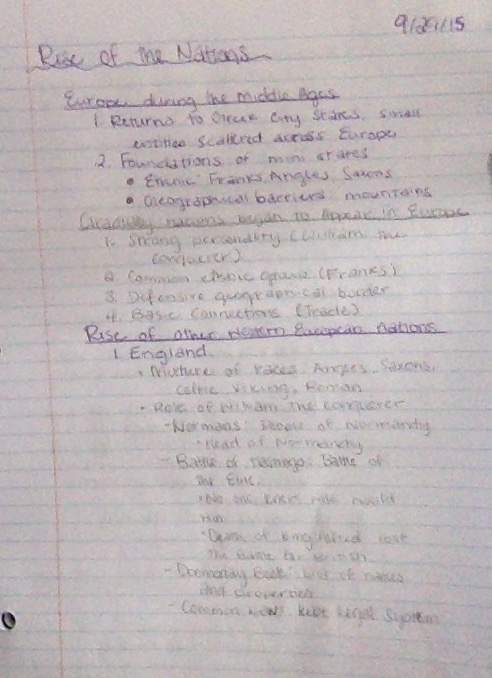 9/29/15
Rise of the Nations
Europe during the Middle Ages
1. Returns to Greek City States, small
entities scattered across Europe
2. Foundations of mini states
• Ethnic: Franks, Angles, Saxons
• Geographical barriers: mountains
Gradually nations began to Appear in Europe
1. Strong personality (William the
conquerer)
2. Common ethnic group (Franks)
3. Defensive geographical border
4. Basic Connections (Trade)
Rise of other Western European Nations
1. England
• Mixture of Races: Angles, Saxons,
Celtic, Viking, Roman
• Role of William the conquerer
- Normans: People of Normandy
• Head of Normandy
- Battle of Hastings: Battle of
the Elite.
• No one knew who would
win
• Death of king lost
the battle for
- Doomsday Book: list of names
and properties
- Common Laws: kept legal system